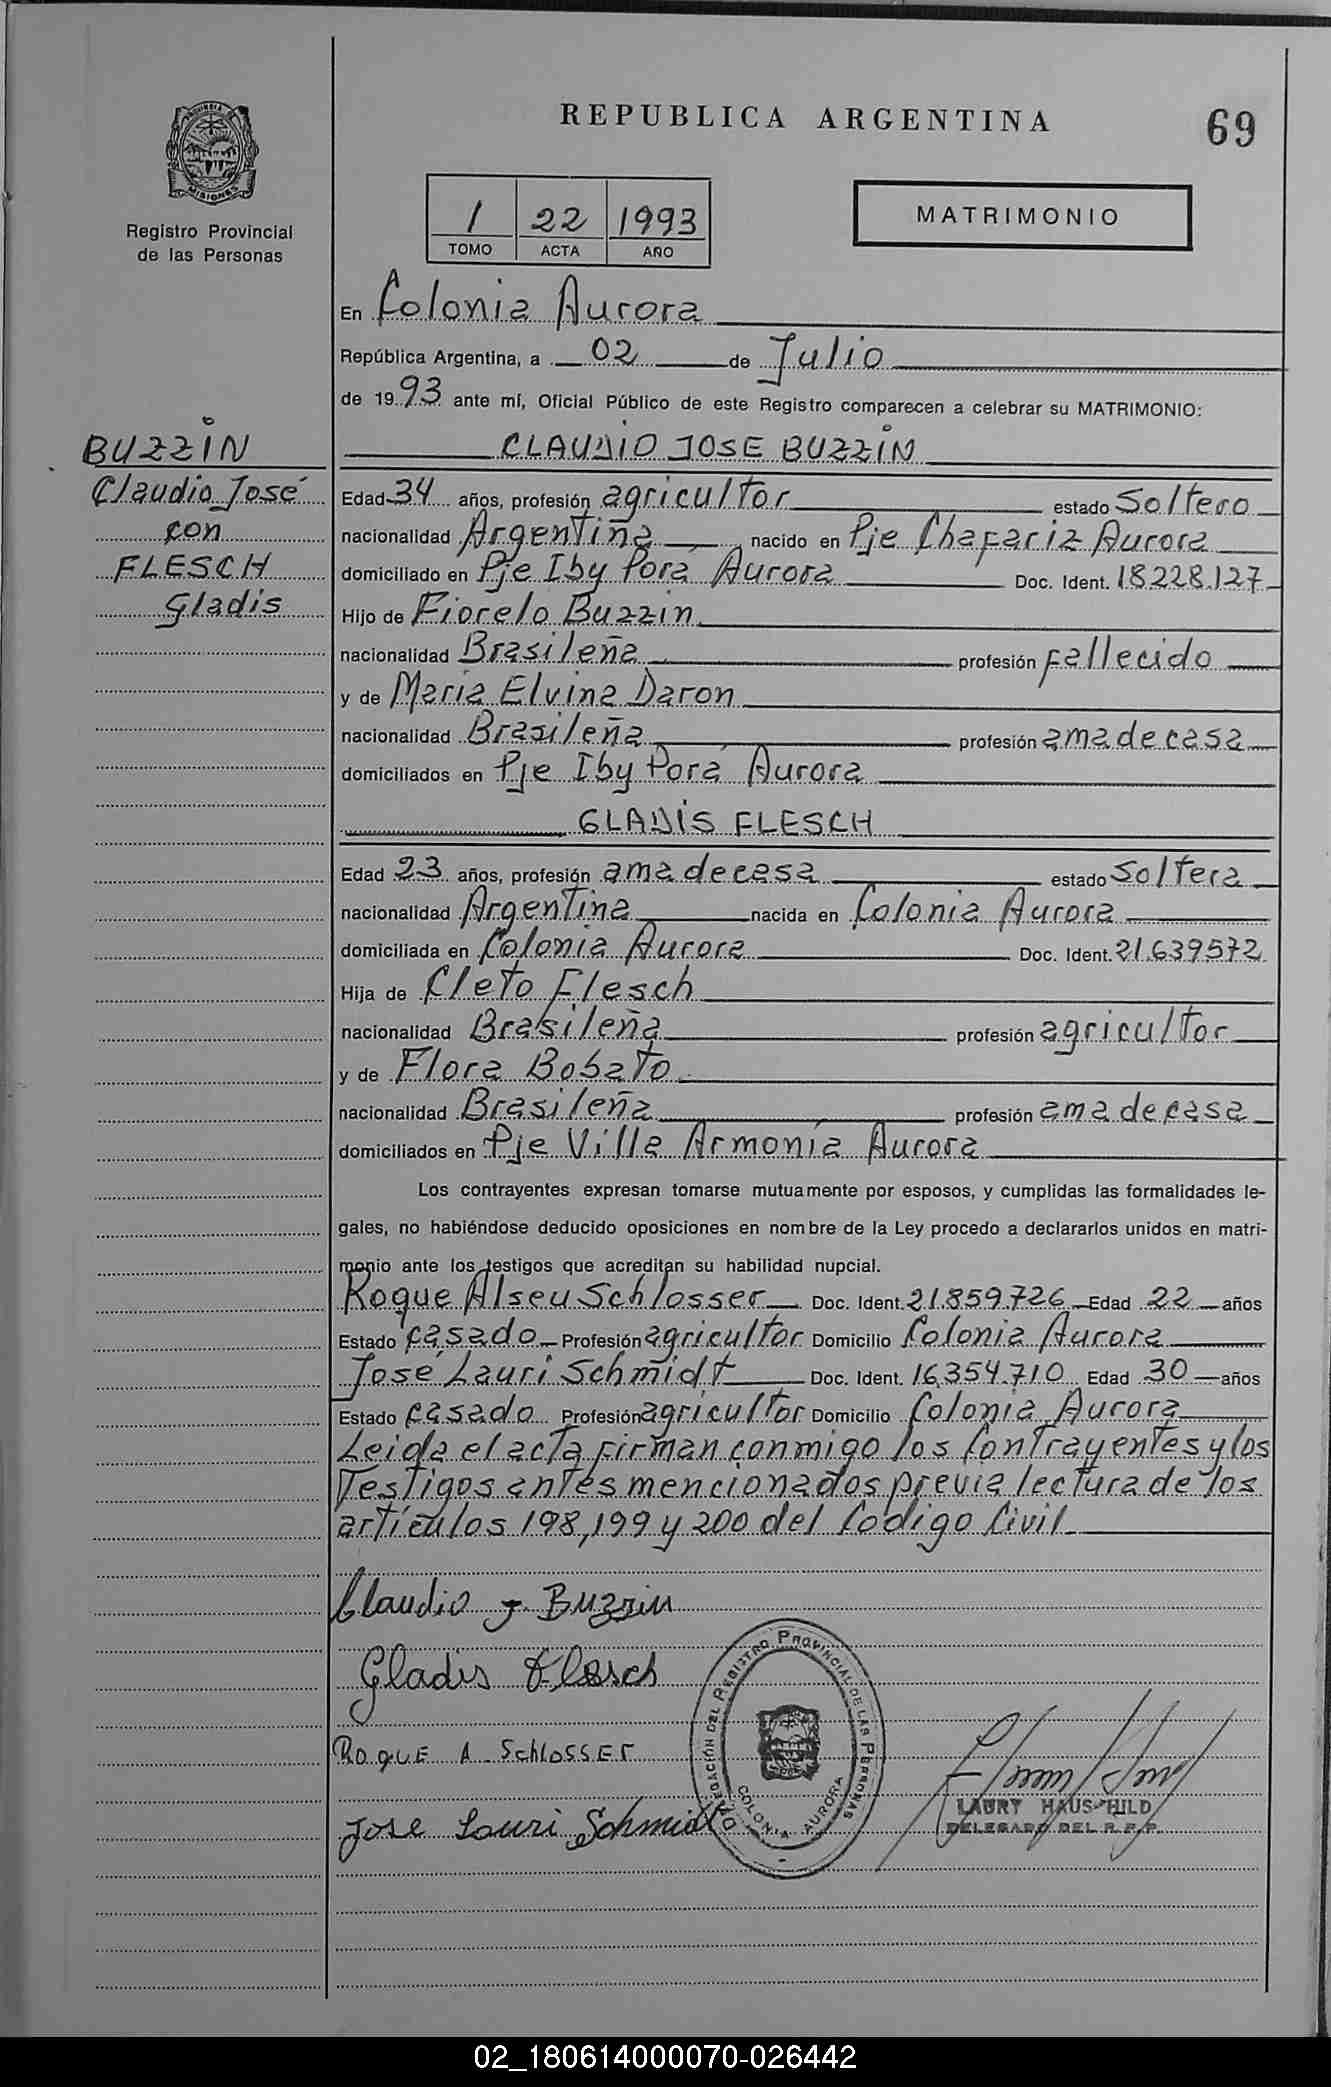 REPUBLICA ARGENTINA
69
PROVINCIA DE
MISIONES
Registro Provincial
de las Personas
1 22 1993
TOMO ACTA AÑO
MATRIMONIO
En Colonia Aurora
República Argentina, a 02 de Julio
de 19 93 ante mí, Oficial Público de este Registro comparecen a celebrar su MATRIMONIO:
BUZZIN
Claudio José
con
FLESCH
Gladis
CLAUDIO JOSE BUZZIN
Edad 34 años, profesión agricultor estado Soltero
nacionalidad Argentina nacido en Pje Chafariz Aurora
domiciliado en Pje Iby Porá Aurora Doc. Ident. 18.228.127
Hijo de Fiorelo Buzzin
nacionalidad Brasileña profesión fallecido
y de Maria Elvina Daron
nacionalidad Brasileña profesión ama de casa
domiciliados en Pje Iby Porá Aurora
GLADIS FLESCH
Edad 23 años, profesión ama de casa estado Soltera
nacionalidad Argentina nacida en Colonia Aurora
domiciliada en Colonia Aurora Doc. Ident. 21.639572
Hija de Cleto Flesch
nacionalidad Brasileña profesión agricultor
y de Flora Bobato
nacionalidad Brasileña profesión ama de casa
domiciliados en Pje Villa Armonía Aurora
Los contrayentes expresan tomarse mutuamente por esposos, y cumplidas las formalidades le-
gales, no habiéndose deducido oposiciones en nombre de la Ley procedo a declararlos unidos en matri-
monio ante los testigos que acreditan su habilidad nupcial.
Roque Alseu Schlosser Doc. Ident. 21.859.726 Edad 22 años
Estado casado Profesión agricultor Domicilio Colonia Aurora
José Lauri Schmidt Doc. Ident. 16.354.710 Edad 30 años
Estado casado Profesión agricultor Domicilio Colonia Aurora
Leida el acta firman conmigo los Contrayentes y los
Testigos antes mencionados previa lectura de los
artículos 198, 199 y 200 del Codigo Civil
Claudio J. Buzzin
Gladis Flesch
ROQUE A. SchlossEr
Jose Lauri Schmidt
DELEGACIÓN DEL REGISTRO PROVINCIAL DE LAS PERSONAS
COLONIA AURORA
LAURY HAUSCHILD
DELEGADO DEL R.P.P.
02_180614000070-026442